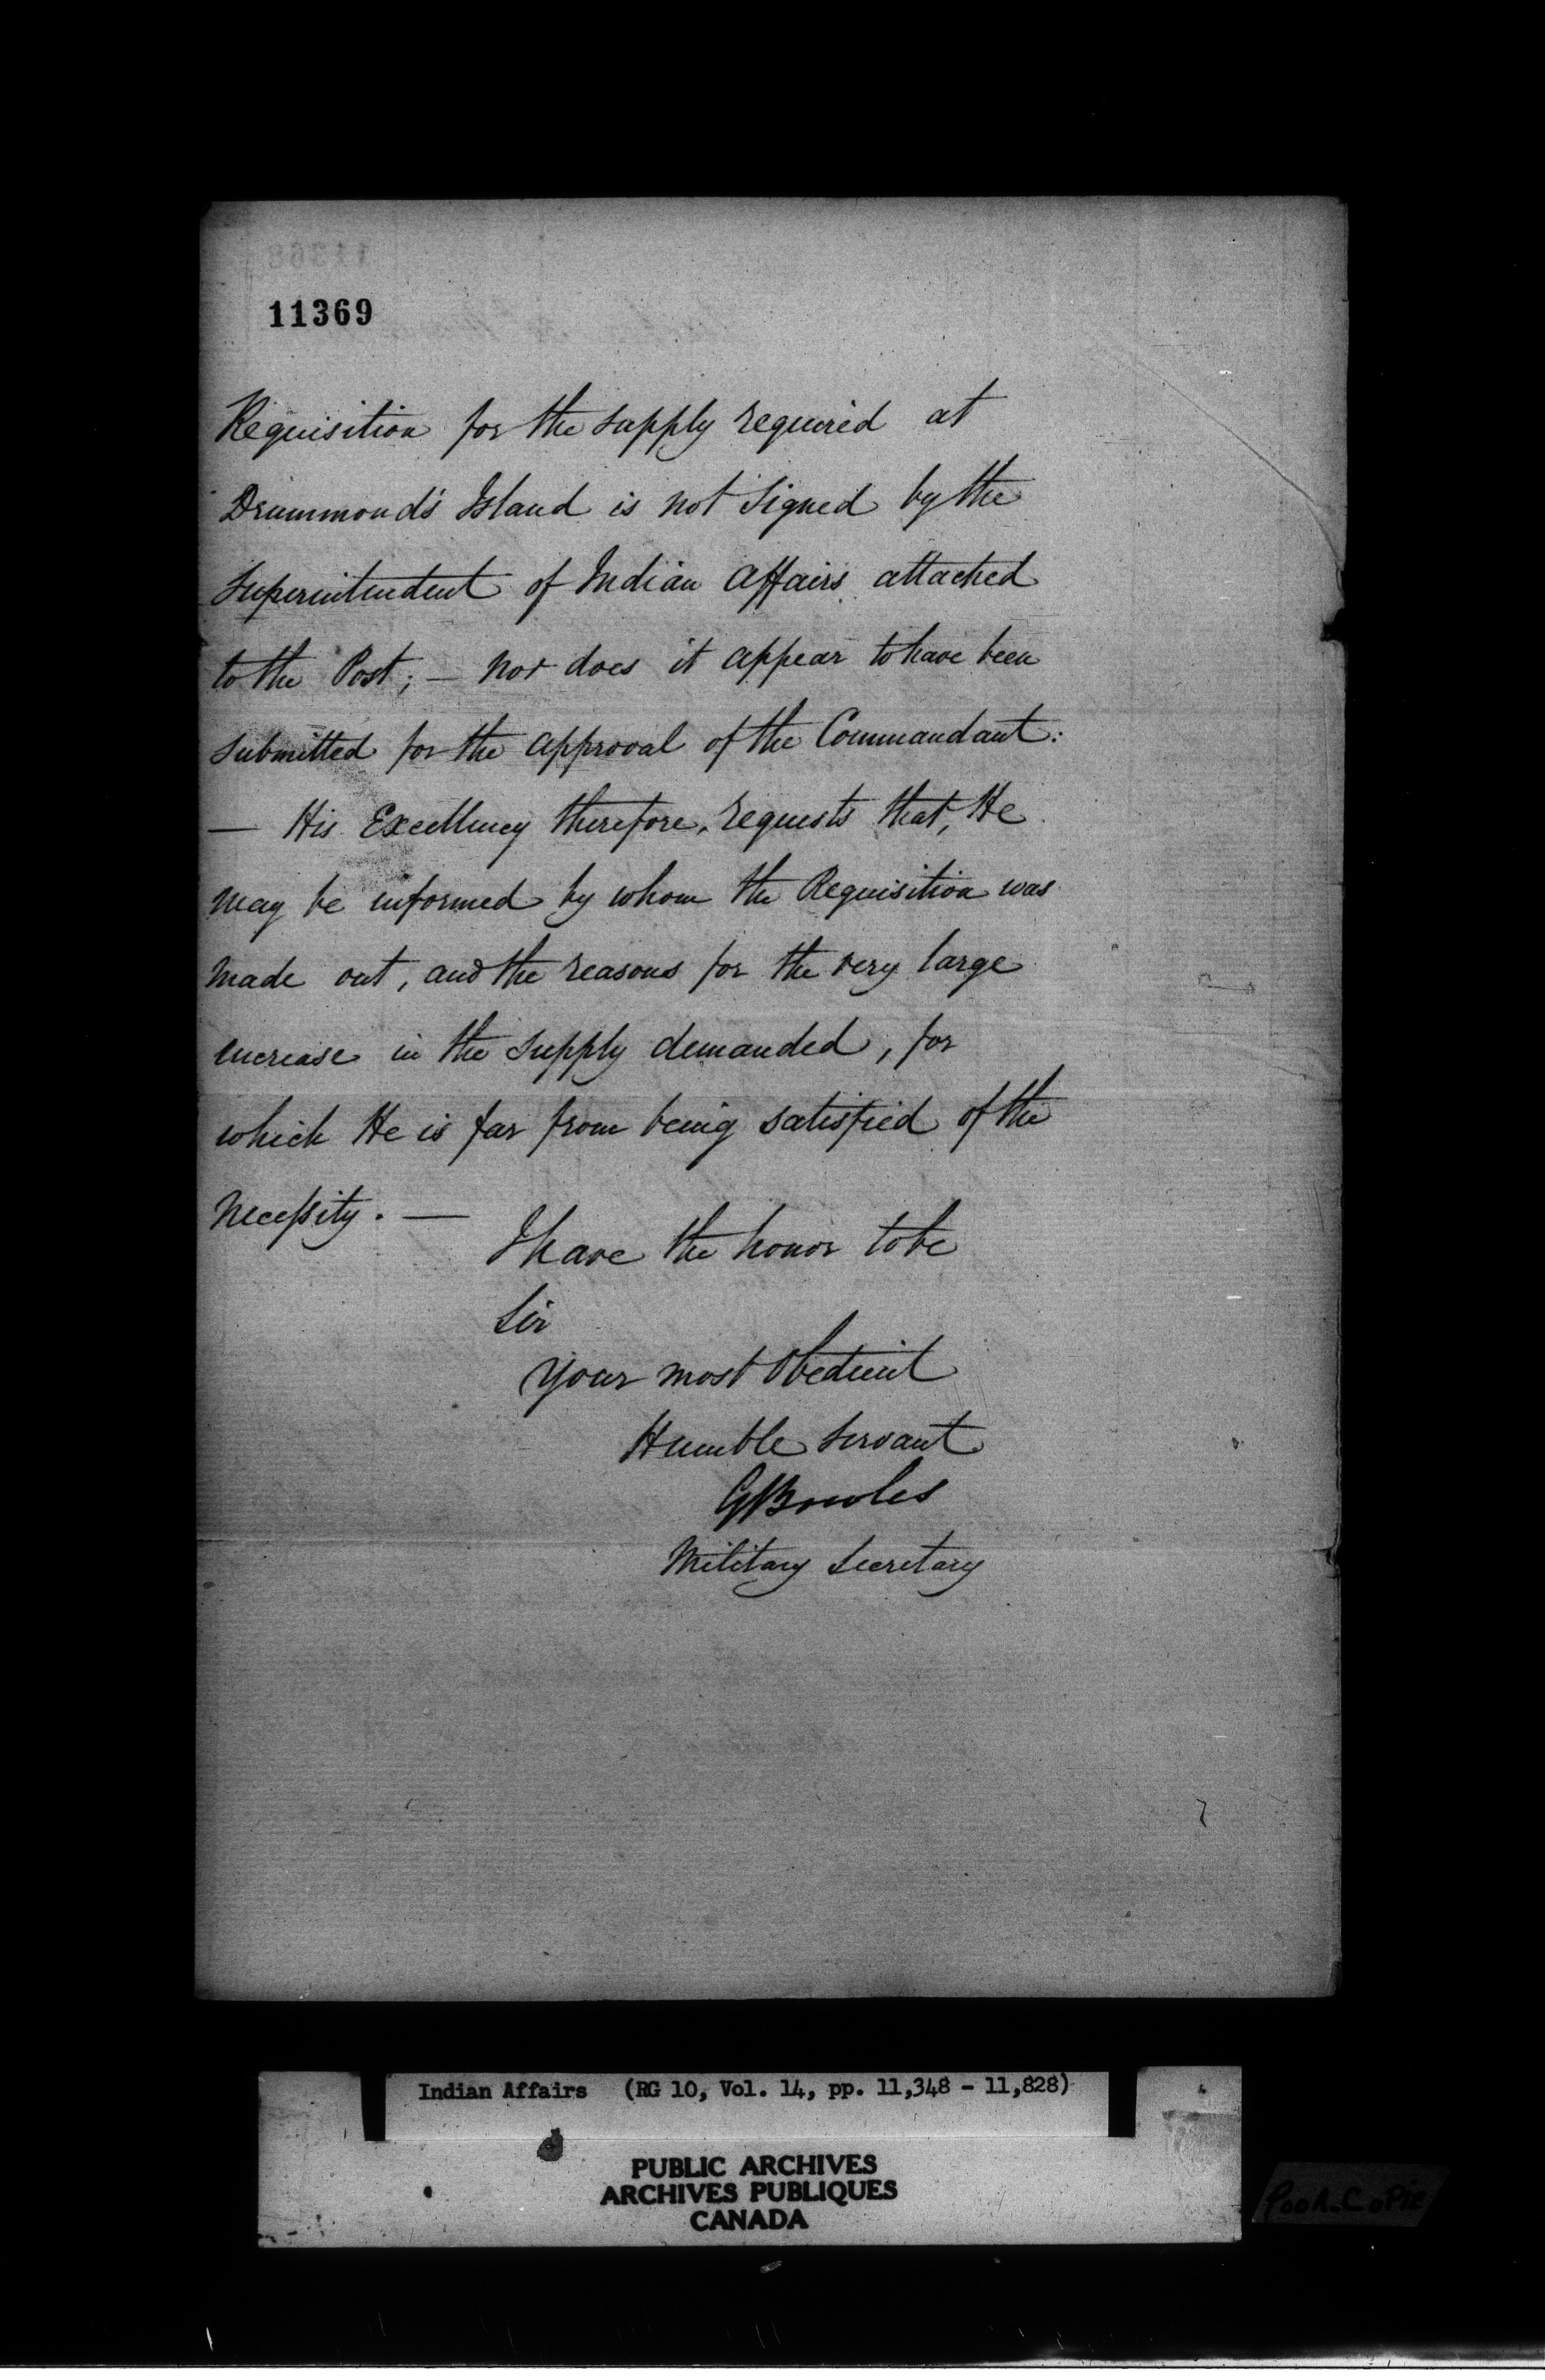 11369
Requisition for the supply required at
Drummond's Island is not signed by the
Superintendent of Indian Affairs attached
to the Post; — nor does it appear to have been
submitted for the approval of the Commandant:
— His Excellency therefore, requests that, He
may be informed by whom the Requisition was
made out, and the reasons for the very large
increase in the supply demanded, for
which He is far from being satisfied of the
necessity. —
I have the honor to be
Sir
Your most Obedient
Humble Servant
G Bowles
Military Secretary
Indian Affairs (RG 10, Vol. 14, pp. 11,348 - 11,828)
PUBLIC ARCHIVES
ARCHIVES PUBLIQUES
CANADA
POOR COPIE